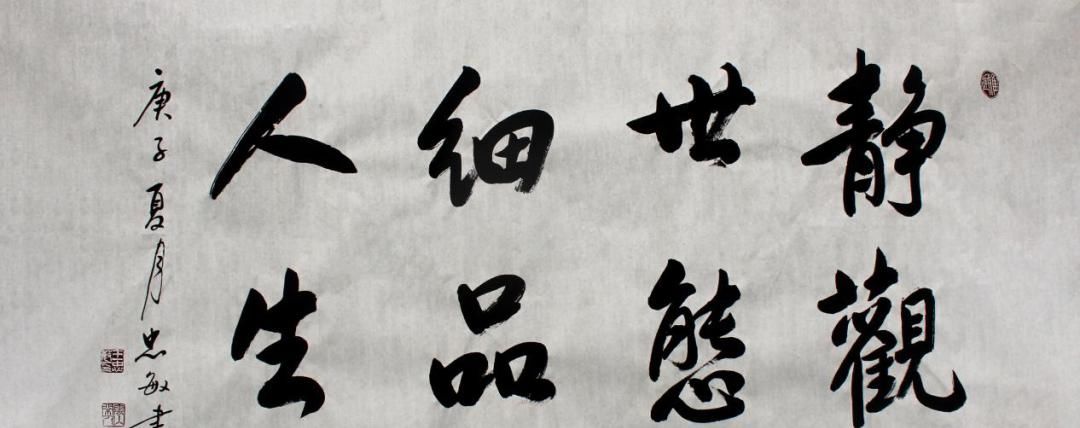 静觀
世態
細品
人生
庚子夏月忠敏書